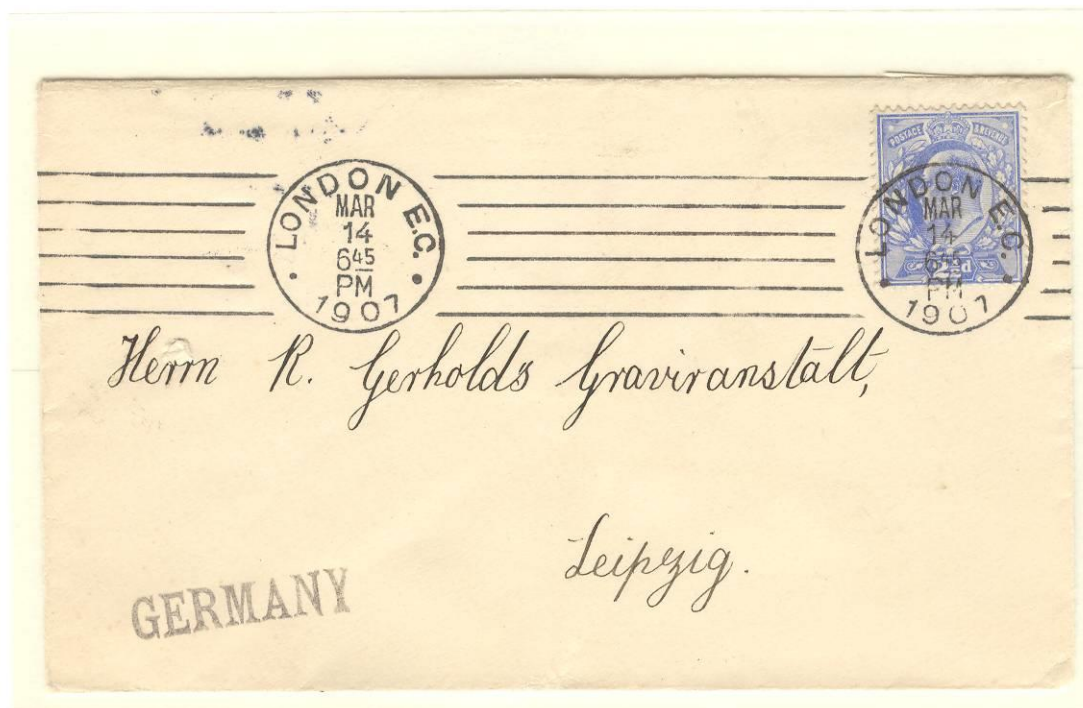 LONDON E.C.
MAR
14
6 45
PM
1907
POSTAGE & REVENUE
LONDON E.C.
MAR
14
6 45
PM
1907
2½d
Herrn R. Gerholds Graviranstalt,
Leipzig.
GERMANY